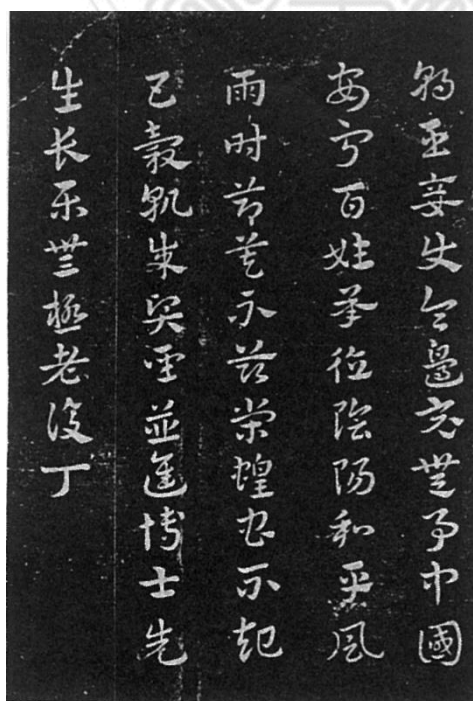 朝臣妾使令邊竟無事中國
安寧百姓承德陰陽和平風
雨時節莫不茲榮蝗蟲不起
五穀孰成賢聖並進博士先
生長樂無極老復丁